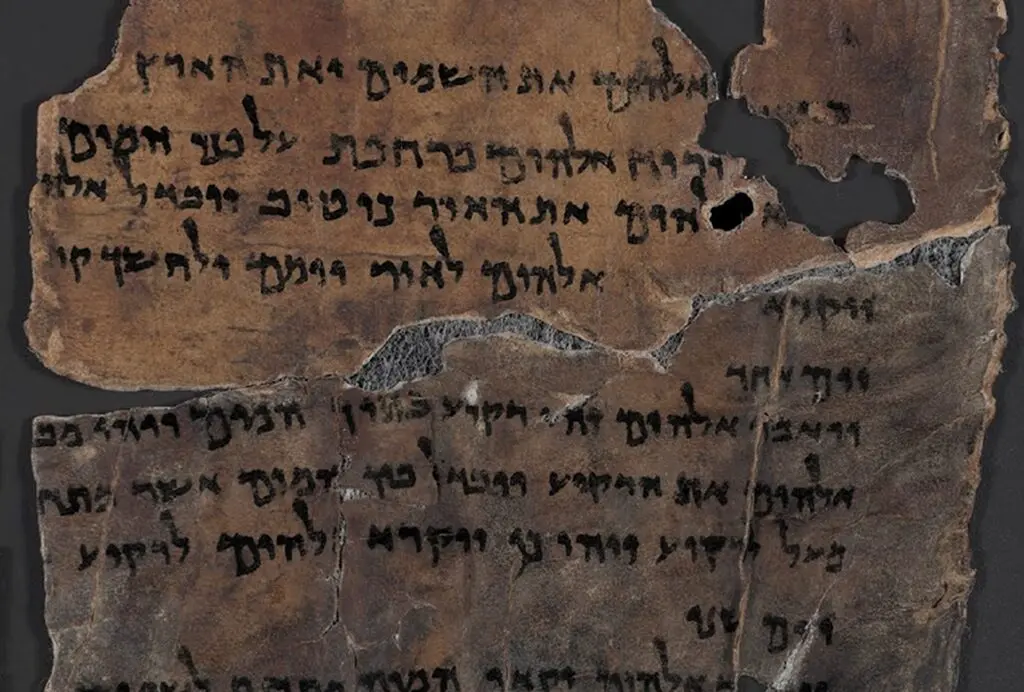 אלהים את השמים ואת הארץ
ורוח אלהים מרחפת על פני המים
להים את האור כי טוב ויבדל אלה
אלהים לאור יומם ולחשך קר
ויקרא
יום אחד
ויאמר אלהים יהי רקיע בתוך המים ויהי מב
אלהים את הרקיע ויבדל בין המים אשר מתח
מעל לרקיע ויהי כן ויקרא אלהים לרקיע
יום שני
אלהים יקוו המים מתחת